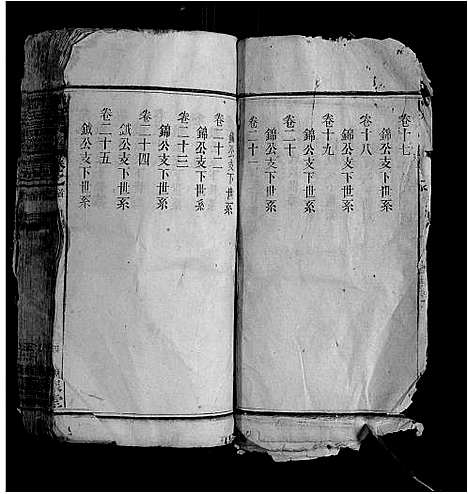 卷十七
錦公支下世系
卷十八
錦公支下世系
卷十九
錦公支下世系
卷二十
錦公支下世系
卷二十一
錦公支下世系
卷二十二
錦公支下世系
卷二十三
錦公支下世系
卷二十四
鉞公支下世系
卷二十五
鉞公支下世系